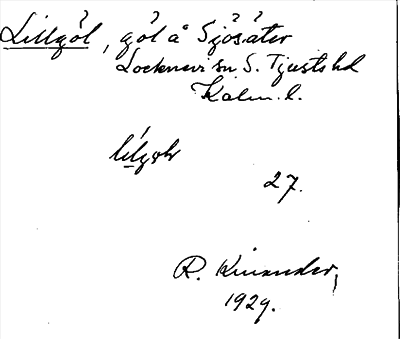 Lillgöl, göl å Sjösäter
Locknevi sn. S. Tjusts hd
Kalm. l.
lilgøls
27.
R. Kinander,
1929.